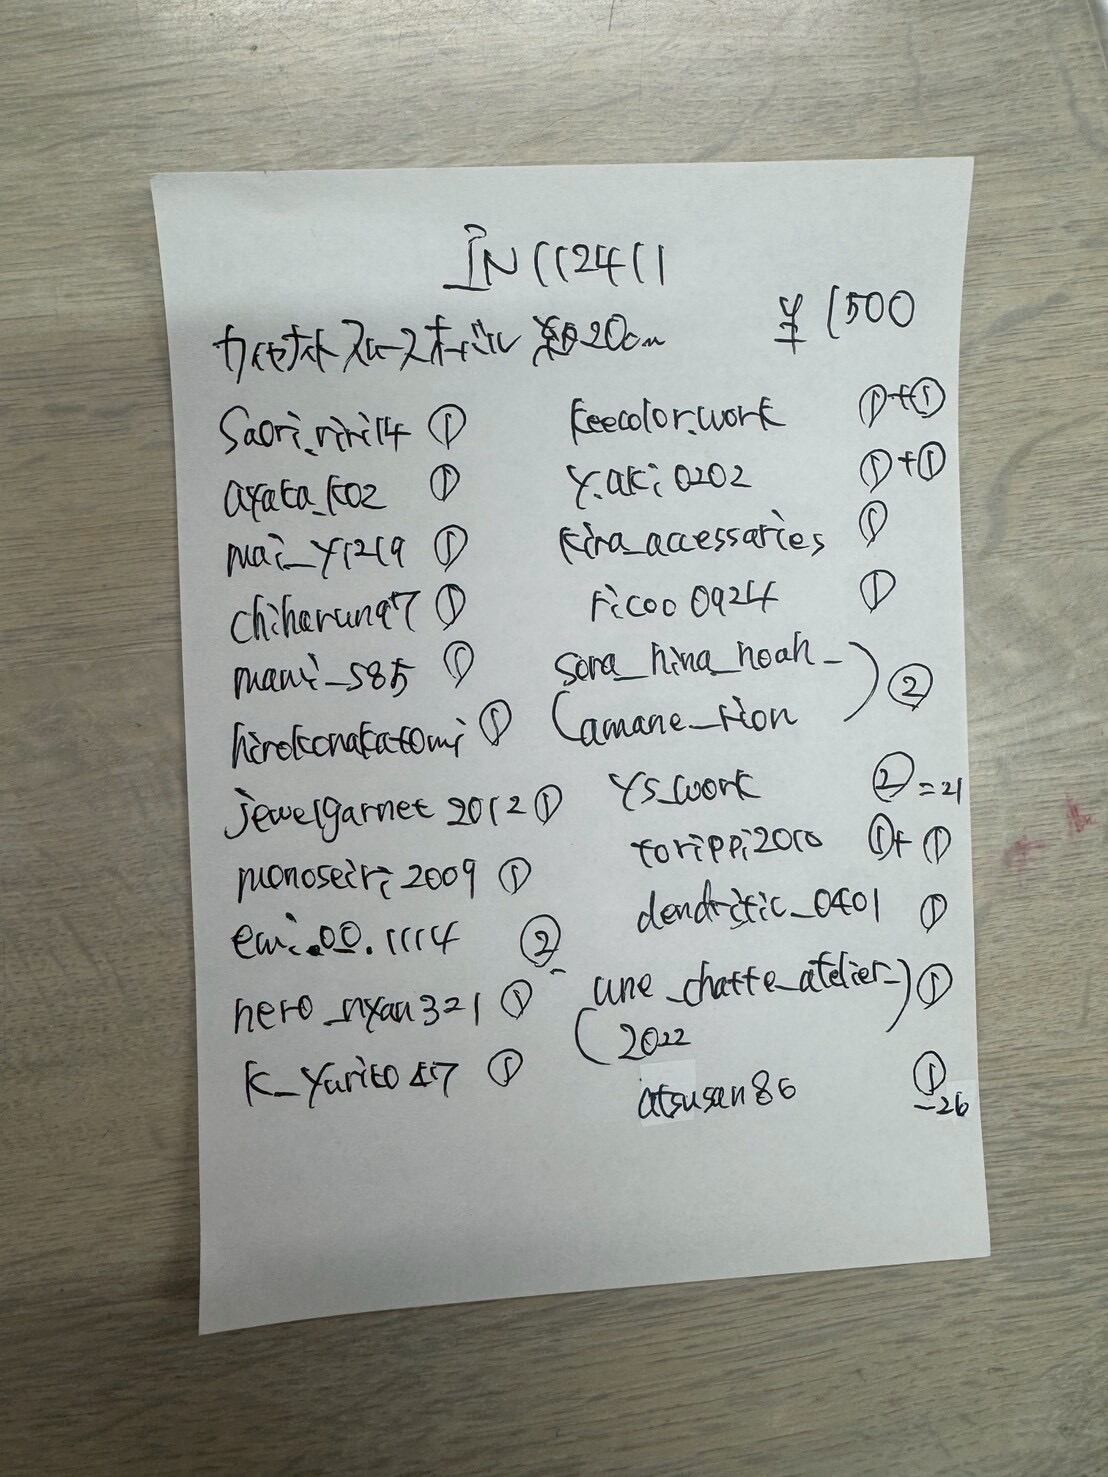 IN112411
カイヤナイトスムースオーバル 約20cm ¥1500
Saori.riri14 ①
ayaka_k02 ①
mai_y1219 ①
chiharun97 ①
mami_s85 ①
hirokonakatomi ①
jewelgarnet2012 ①
monoseiri2009 ①
emi.00.1114 ②
nero_nyan321 ①
k_yurito47 ①
keecolor.work ①+①
y.aki0202 ①+①
kira_accessaries ①
ricoo0924 ①
sora_hina_noah_
(amane_rion) ②
ys_work ②=21
torippi2010 ①+①
dendritic_0401 ①
une_chatte_atelier_
(2022) ①
atsusan86 ①
-26